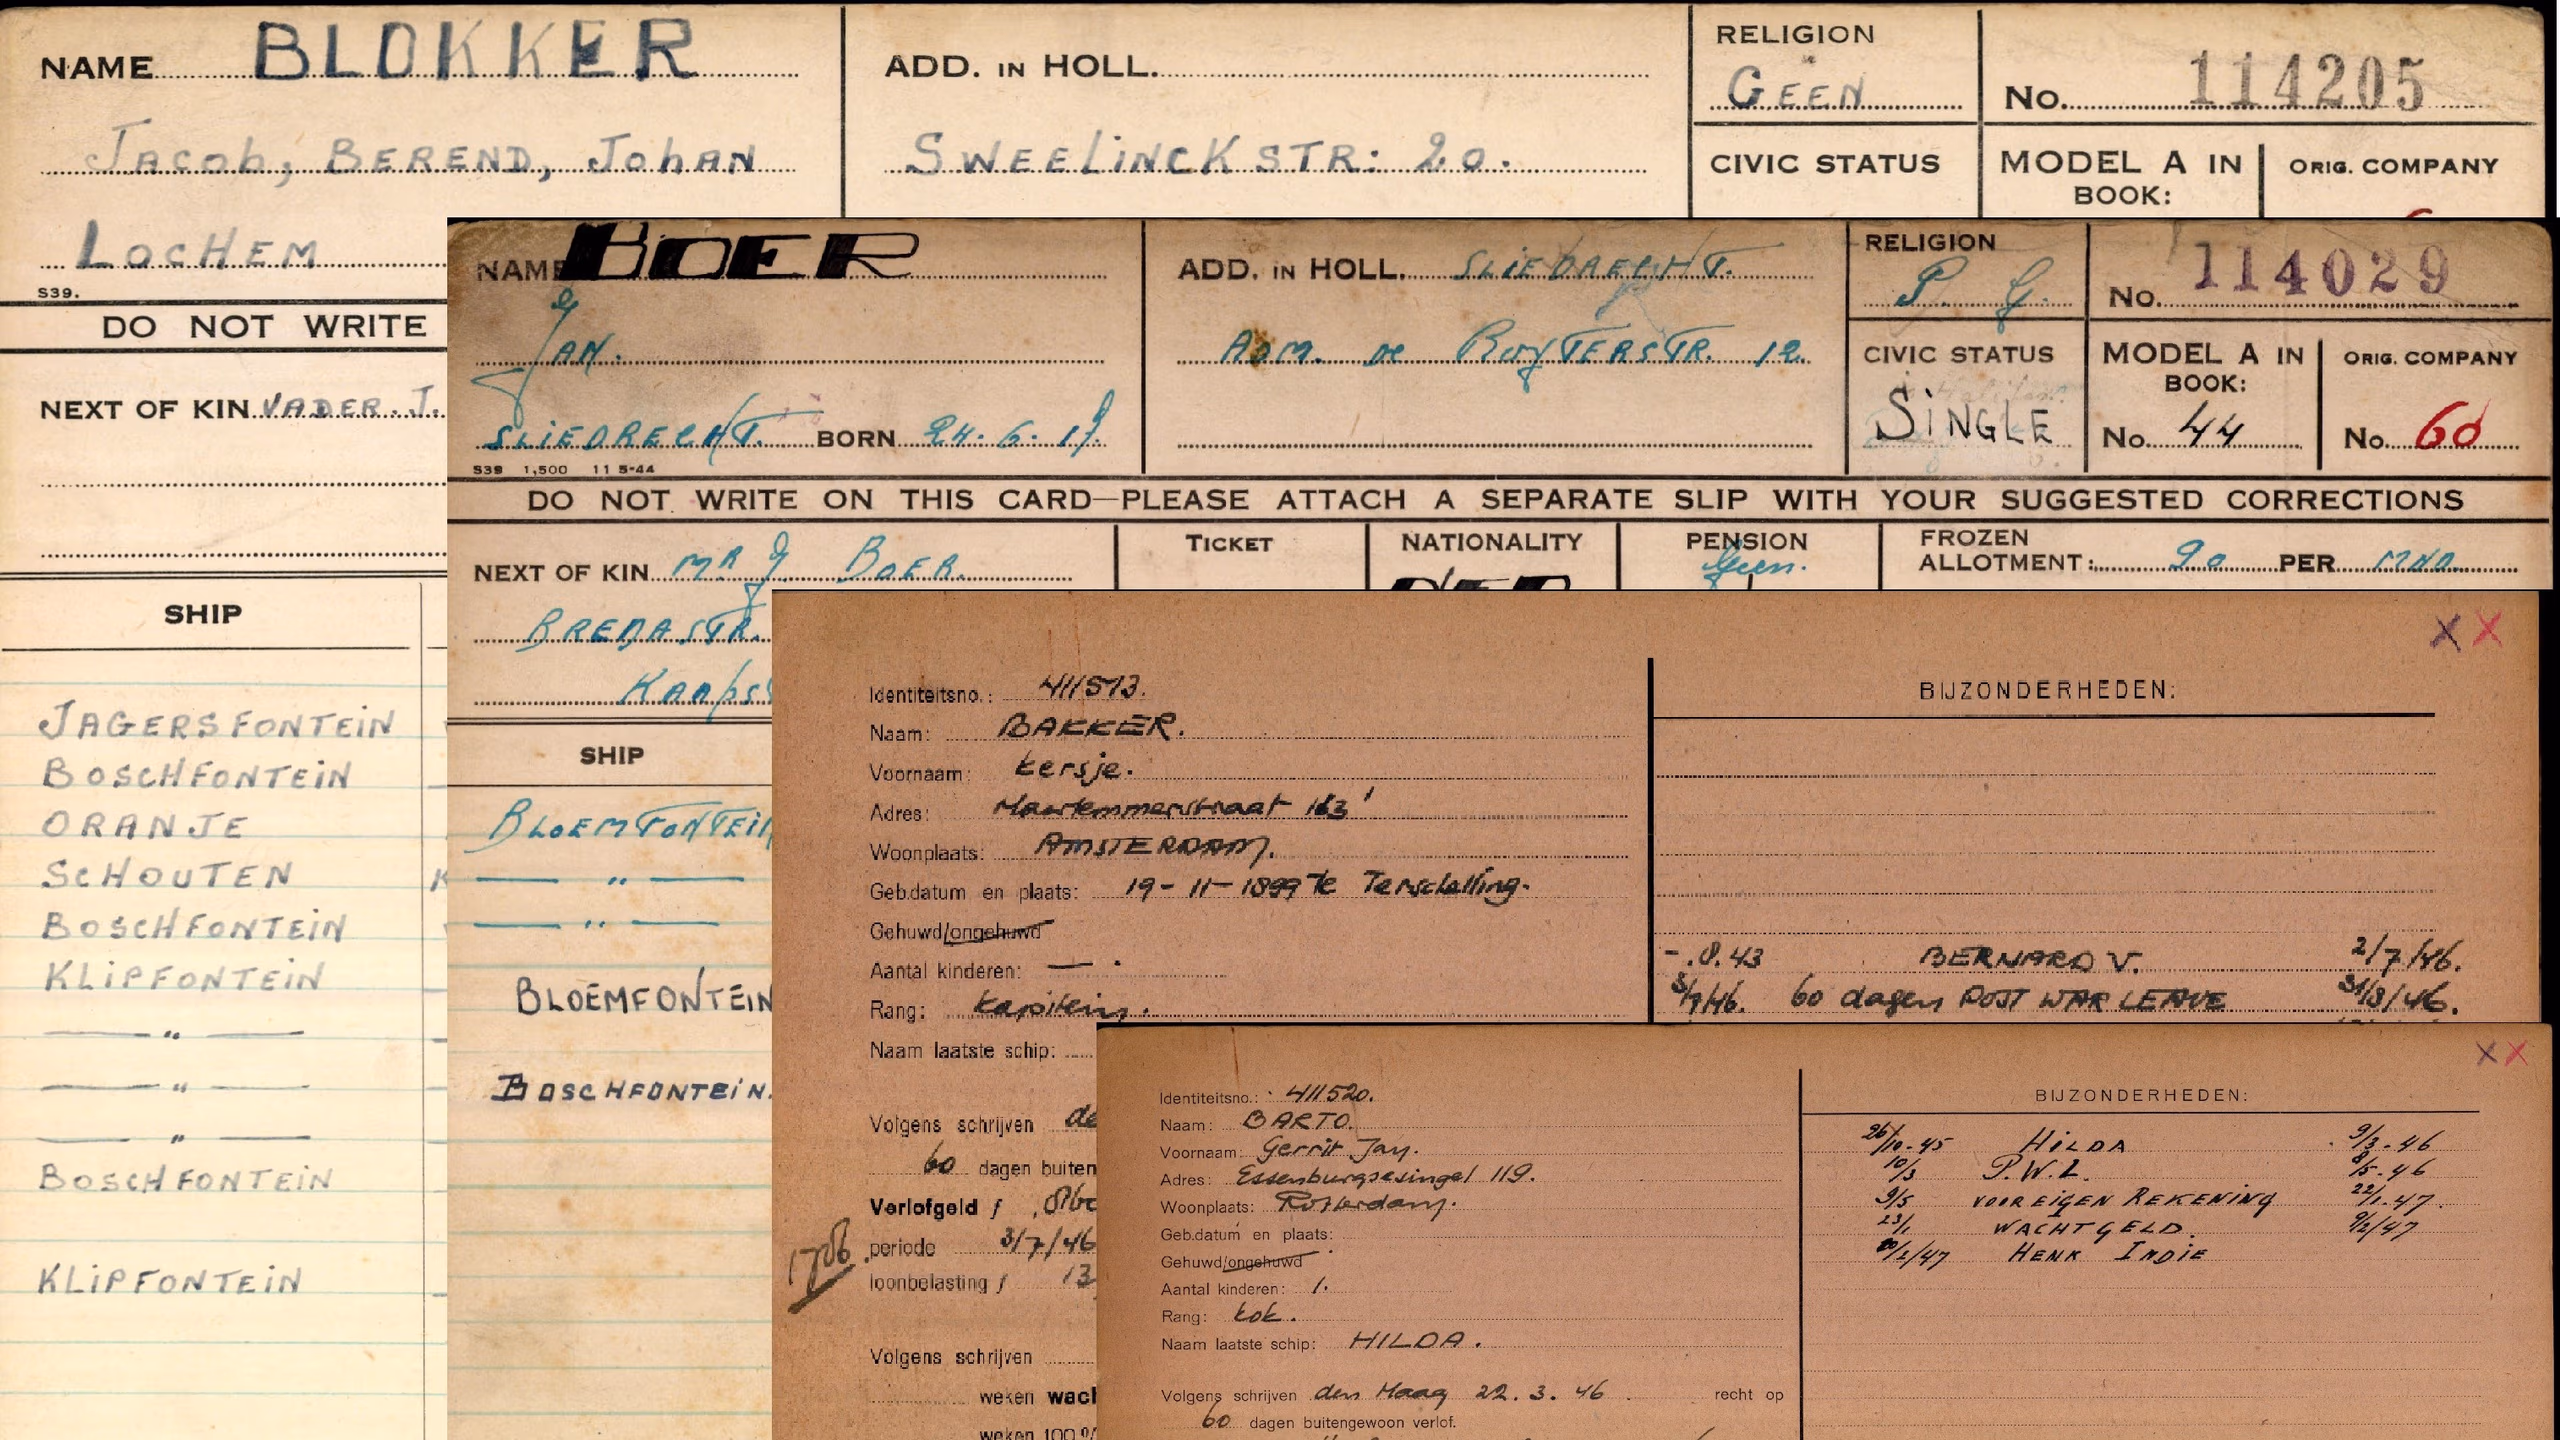 NAME BLOKKER
Jacob, BEREND, Johan
LOCHEM
S39.
ADD. IN HOLL.
SWEELINCKSTR: 20.
RELIGION
GEEN
No. 114205
CIVIC STATUS
MODEL A IN BOOK:
ORIG. COMPANY
DO NOT WRITE
NEXT OF KIN VADER. J.
SHIP
JAGERSFONTEIN
BOSCHFONTEIN
ORANJE
SCHOUTEN
BOSCHFONTEIN
KLIPFONTEIN
— " —
— " —
— " —
BOSCHFONTEIN
KLIPFONTEIN
NAME BOER
JAN.
SLIEDRECHT. BORN 24. 6. 19
S39 1,500 11 5-44
ADD. IN HOLL. SLIEDRECHT.
ADM. de RUYTERSTR. 12.
RELIGION
P. G.
No. 114029
CIVIC STATUS
SINGLE
MODEL A IN BOOK:
No. 44
ORIG. COMPANY
No. 60
DO NOT WRITE ON THIS CARD—PLEASE ATTACH A SEPARATE SLIP WITH YOUR SUGGESTED CORRECTIONS
NEXT OF KIN MR J BOER.
BREDASTR.
TICKET
NATIONALITY
PENSION
Geen.
FROZEN
ALLOTMENT: 90 PER MND.
SHIP
BLOEMFONTEIN
— " —
— " —
BLOEMFONTEIN
BOSCHFONTEIN.
X X
Identiteitsno.: 411513.
Naam: BAKKER.
Voornaam: Kersje.
Adres: Haarlemmerstraat 163'
Woonplaats: AMSTERDAM.
Geb.datum en plaats: 19-11-1899 te Terschelling.
Gehuwd/ongehuwd
Aantal kinderen: — .
Rang: Kapitein.
Naam laatste schip:
Volgens schrijven de
60 dagen buiten
Verlofgeld f
periode 3/7/46
loonbelasting f 13
Volgens schrijven
weken wacl
weken 100 %
BIJZONDERHEDEN:
-.8.43 BERNARD V. 2/7/46.
3/7/46. 60 dagen POST WAR LEAVE 31/8/46.
X X
Identiteitsno.: 411520.
Naam: BARTO.
Voornaam: Gerrit Jan.
Adres: Essenburgsesingel 119.
Woonplaats: Rotterdam.
Geb.datum en plaats:
Gehuwd/ongehuwd
Aantal kinderen: 1.
Rang: kok.
Naam laatste schip: HILDA.
Volgens schrijven den Haag 22. 3. 46. recht op
60 dagen buitengewoon verlof.
BIJZONDERHEDEN:
26/10-45 HILDA 9/3-46
10/3 P.W.L. 8/5-46
9/5 VOOR EIGEN REKENING 22/1-47.
23/1 WACHTGELD. 9/2/47
10/2/47 HENK INDIE